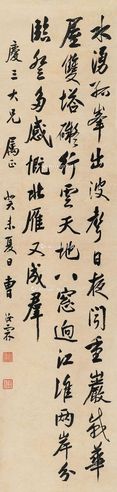 水湧孤峯出波聲日夜聞重巖藏華
屋雙塔礙行雲天地八窓迥江淮兩岸分
臨登多感慨北雁又成羣
慶三大兄属正
癸未夏日曹汝霖